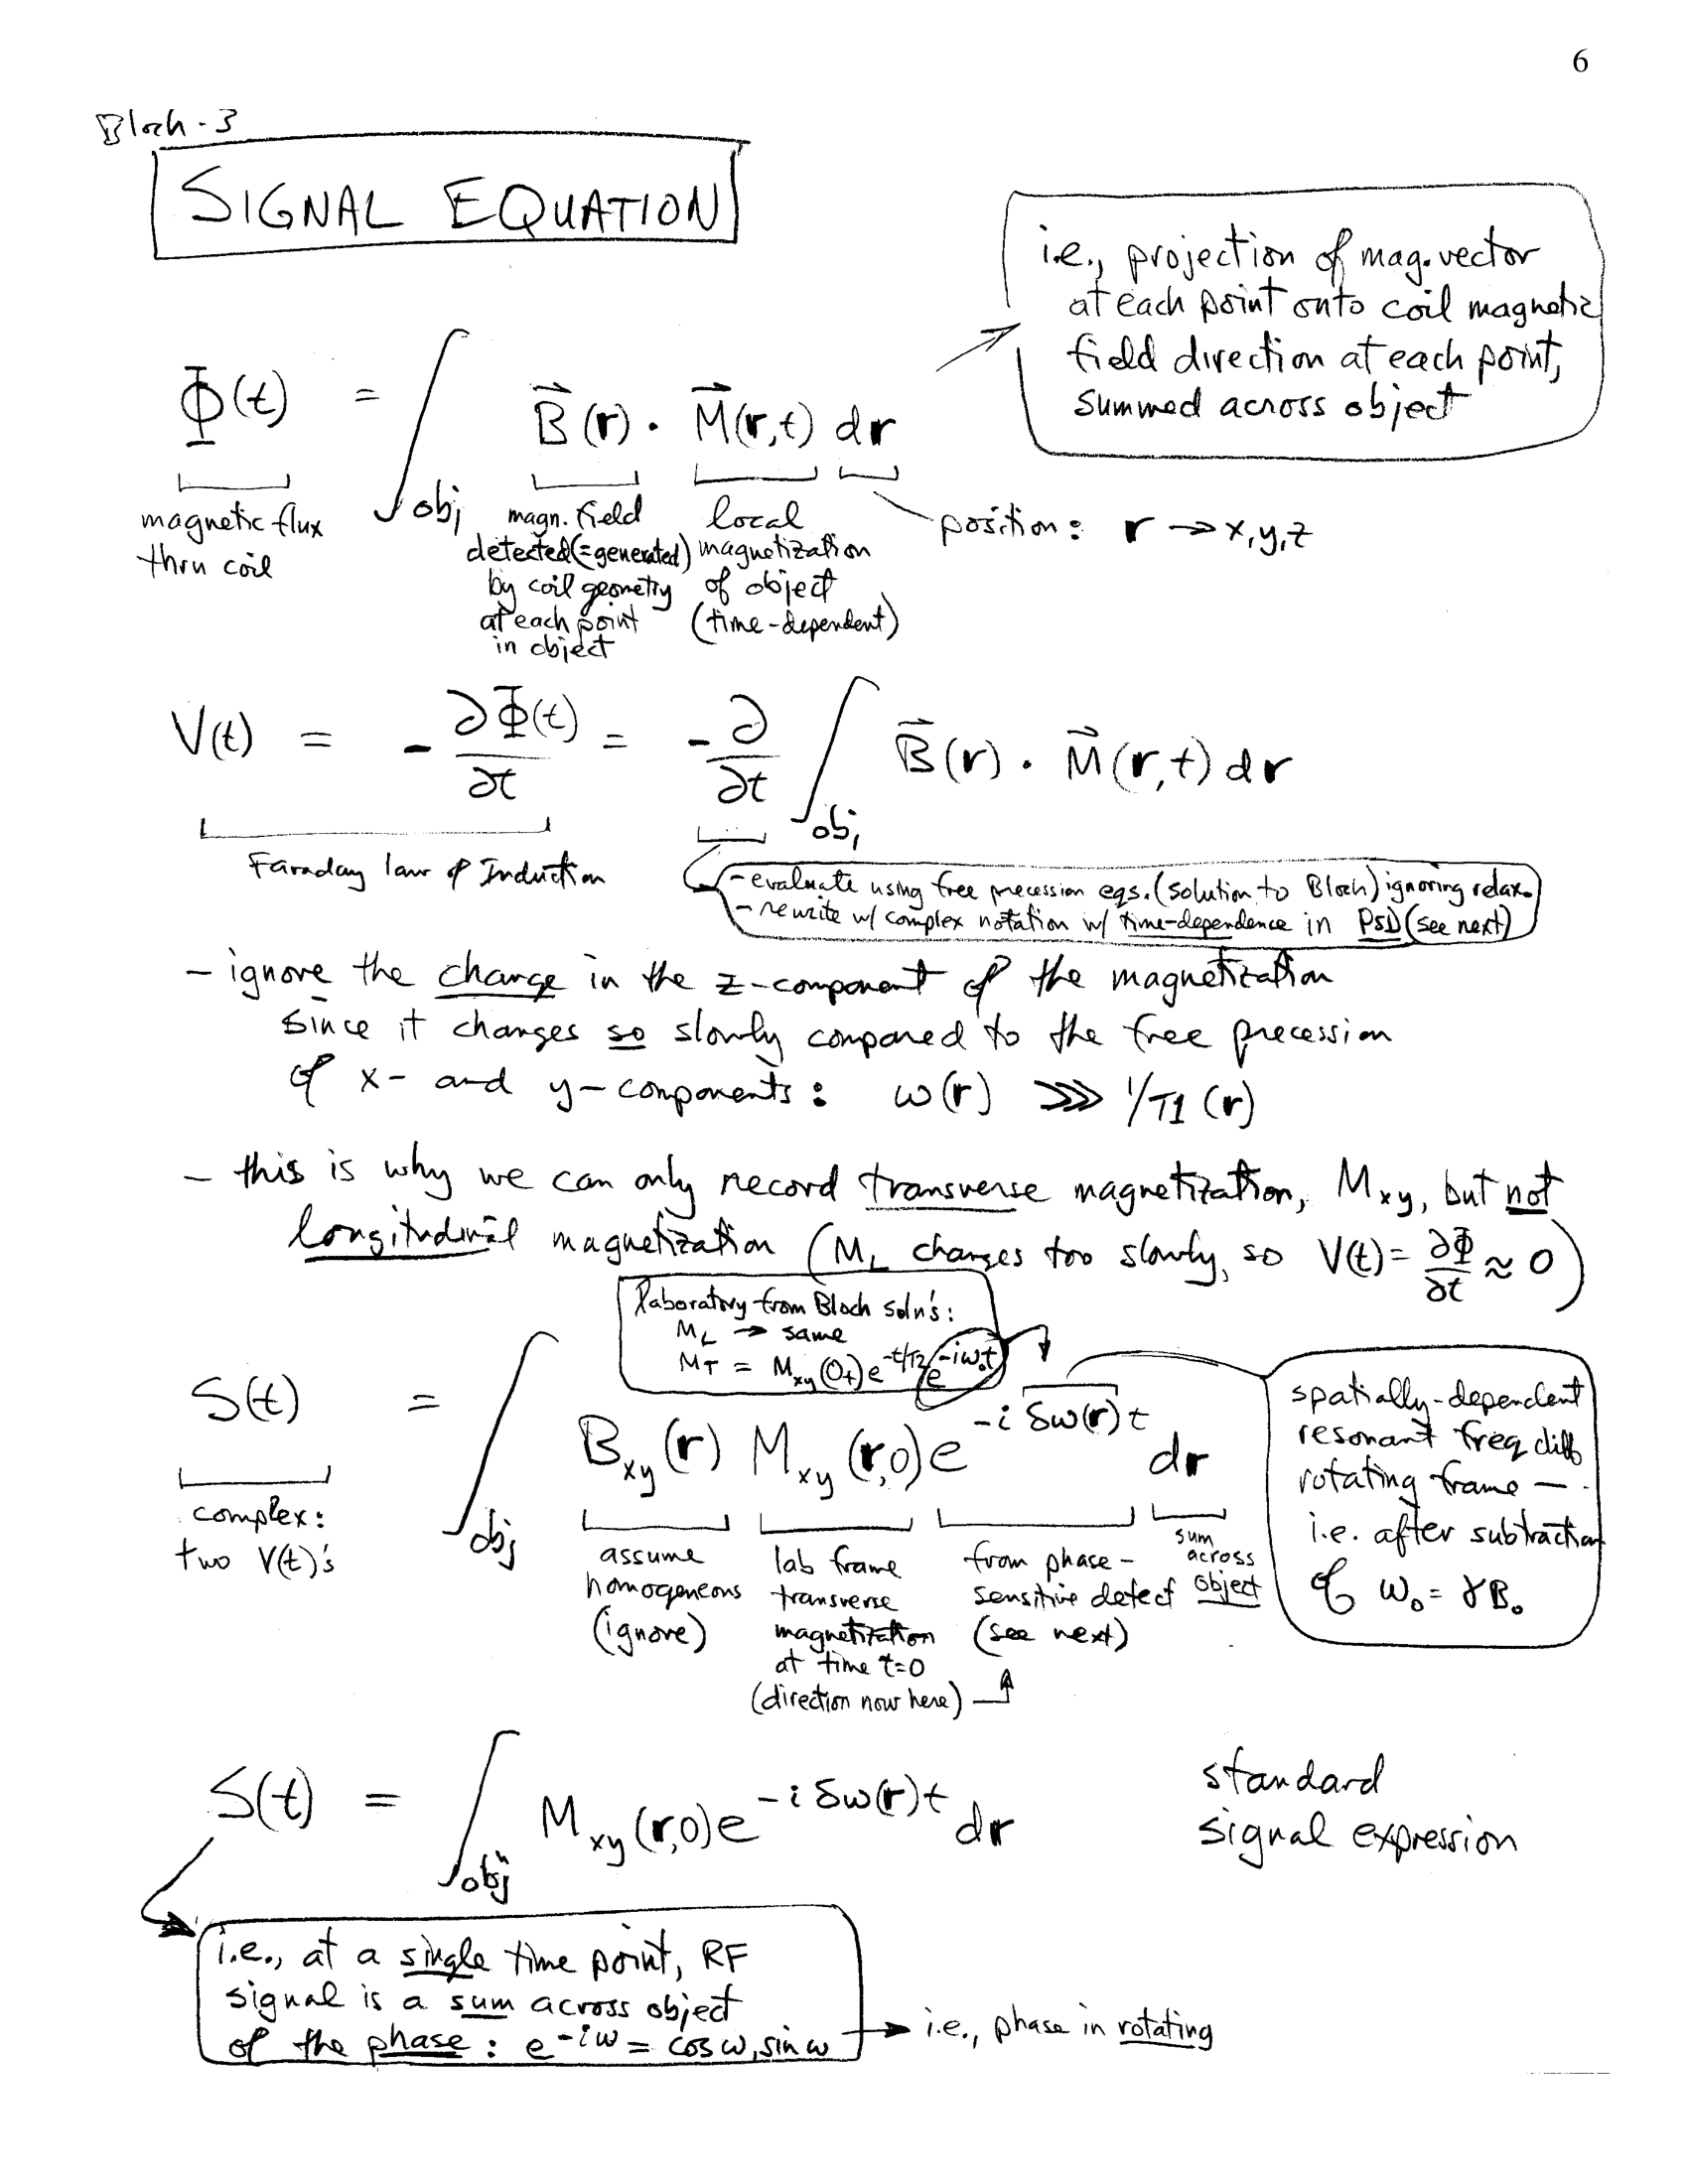 6
Bloch-3
SIGNAL EQUATION
i.e., projection of mag. vector
at each point onto coil magnetic
field direction at each point,
summed across object
Φ(t) = ∫obj B⃗(r) · M⃗(r,t) dr
magnetic flux
thru coil
magn. field
detected(=generated)
by coil geometry
at each point
in object
local
magnetization
of object
(time-dependent)
position: r → x,y,z
V(t) = - ∂Φ(t)/∂t = - ∂/∂t ∫obj B⃗(r) · M⃗(r,t) dr
Faraday law of Induction
- evaluate using free precession eqs. (solution to Bloch) ignoring relax.
- rewrite w/ complex notation w/ time-dependence in PSD (see next)
- ignore the change in the z-component of the magnetization
since it changes so slowly compared to the free precession
of x- and y-components: ω(r) >>> 1/T1 (r)
- this is why we can only record transverse magnetization, Mxy, but not
longitudinal magnetization (ML changes too slowly, so V(t) = ∂Φ/∂t ≈ 0)
laboratory from Bloch soln's:
ML → same
MT = Mxy(0+) e^-t/T2 e^-iω₀t
S(t) = ∫obj Bxy(r) Mxy(r,0) e^-iδω(r)t dr
complex:
two V(t)'s
assume
homogeneous
(ignore)
lab frame
transverse
magnetization
at time t=0
(direction now here)
from phase-
sensitive detect
(see next)
sum
across
object
spatially-dependent
resonant freq diff
rotating frame —
i.e. after subtraction
of ω₀ = γB₀
S(t) = ∫obj Mxy(r,0) e^-iδω(r)t dr
standard
signal expression
i.e., at a single time point, RF
signal is a sum across object
of the phase: e^-iω = cos ω, sin ω
→ i.e., phase in rotating